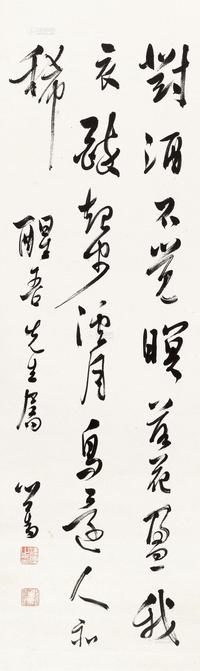 對酒不覺暝落花盈我
衣醉起步溪月鳥還人亦
稀
醒吾先生屬 心畬